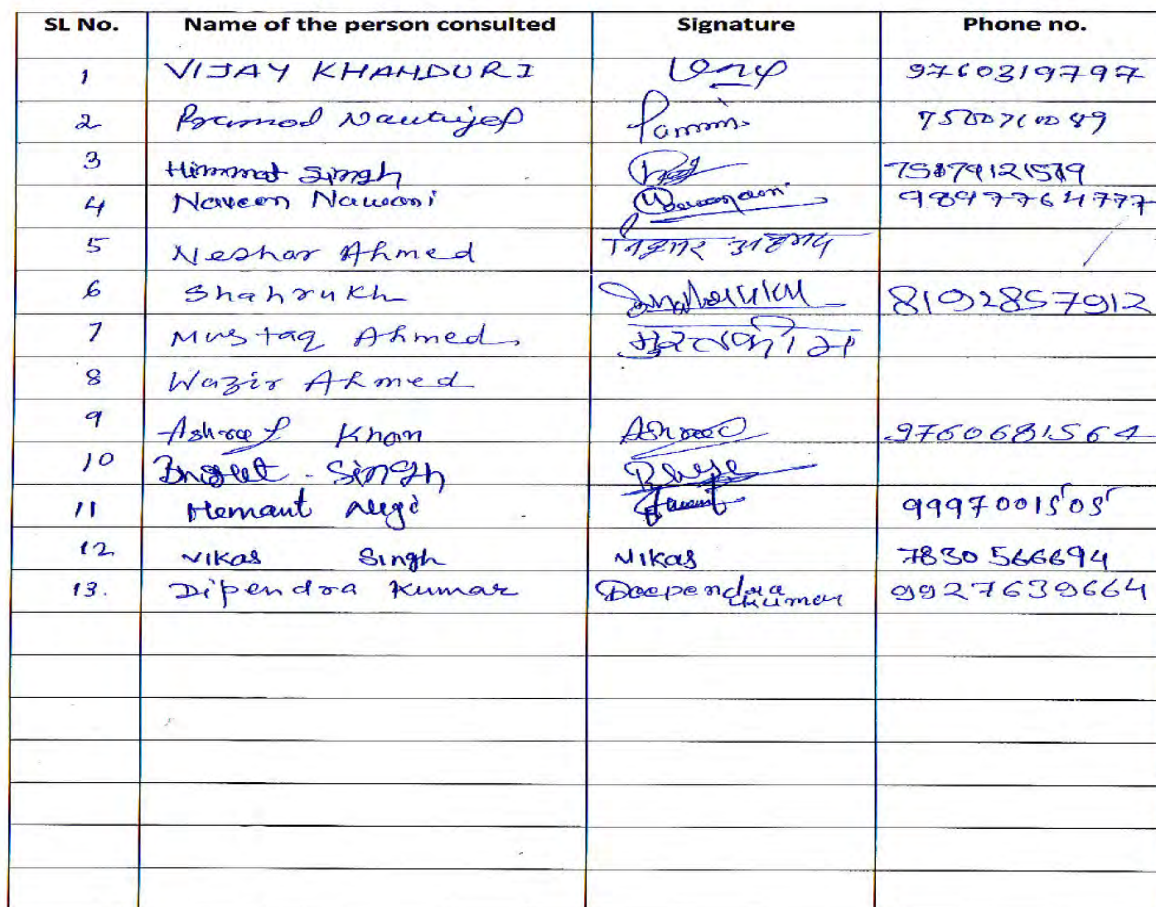 SL No. Name of the person consulted Signature Phone no.
1 VIJAY KHANDURI 9760319797
2 Pramod
3 Himmat Singh
4 Naveen Nawani 9897764777
5 Neshar Ahmed निसार अहमद
6 Shahrukh 8192857912
7 Mustaq Ahmed.
8 Wazir Ahmed
9 Ashraf Khan 9760681564
10 Singh
11 Hemant Negi 9997001505
12 Vikas Singh Vikas 7830566694
13. Dipendra Kumar Deependra Kumar 9927639664